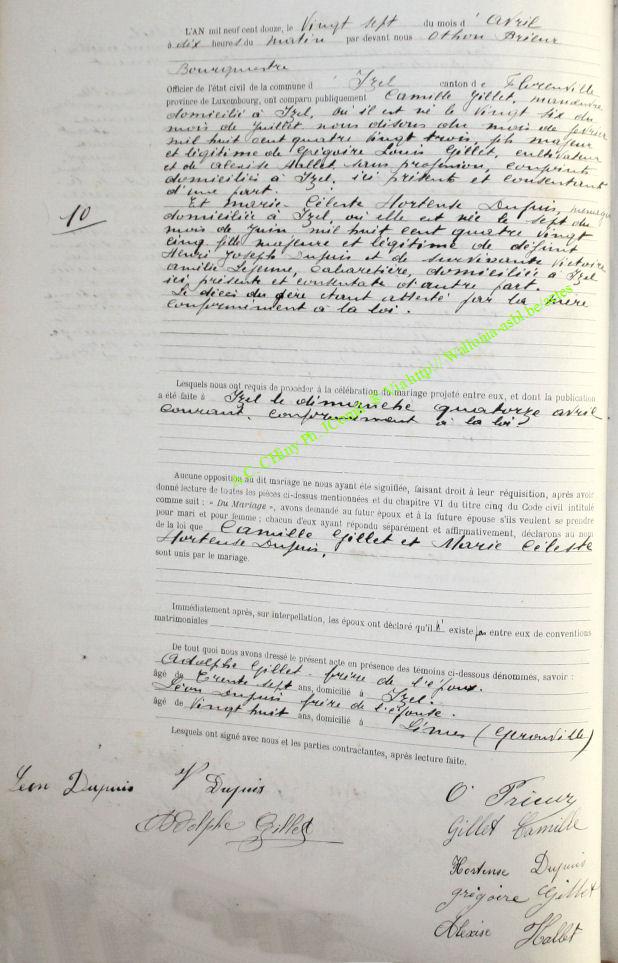 L'AN mil neuf cent douze, le Vingt sept du mois d' Avril
à dix heures du matin par devant nous Othon Prieur
Bourgmestre
Officier de l'état civil de la commune d' Izel canton de Florenville
province de Luxembourg, ont comparu publiquement Camille Gillet,
domicilié à Izel, où il est né le Vingt six du
mois de Juillet nous disons du mois de février
mil huit cent quatre vingt trois, fils majeur
et légitime de Grégoire Louis Gillet, cultivateur
et de Alexise Hallet sans profession, conjoints
domiciliés à Izel, ici présents et consentant
d'une part.
10
Et Marie Céleste Hortense Dupuis, ménagère
domiciliée à Izel, où elle est née le sept du
mois de Juin mil huit cent quatre vingt
cinq fille majeure et légitime de défunt
Henri Joseph Dupuis et de survivante Victoire
Amélie Lejeune, Cabaretière, domiciliée à Izel
ici présente et consentante d'autre part.
Le décès du père étant attesté par la mère
conformément à la loi.
Lesquels nous ont requis de procéder à la célébration du mariage projeté entre eux, et dont la publication
a été faite à Izel le dimanche quatorze avril
courant. conformément à la loi
Aucune opposition au dit mariage ne nous ayant été signifiée, faisant droit à leur réquisition, après avoir
donné lecture de toutes les pièces ci-dessus mentionnées et du chapitre VI du titre cinq du Code civil intitulé
comme suit : « Du Mariage », avons demandé au futur époux et à la future épouse s'ils veulent se prendre
pour mari et pour femme ; chacun d'eux ayant répondu séparément et affirmativement, déclarons au nom
de la loi que Camille Gillet et Marie Céleste
Hortense Dupuis,
sont unis par le mariage.
Immédiatement après, sur interpellation, les époux ont déclaré qu'il n' existe pas entre eux de conventions
matrimoniales
De tout quoi nous avons dressé le présent acte en présence des témoins ci-dessous dénommés, savoir :
Adolphe Gillet frère de l'époux.
âgé de Trente sept ans, domicilié à Izel.
Léon Dupuis frère de l'épouse.
âgé de Vingt huit ans, domicilié à Limes (Gérouville)
Lesquels ont signé avec nous et les parties contractantes, après lecture faite.
Leon Dupuis V Dupuis O Prieur
Adolphe Gillet Gillet Camille
Hortense Dupuis
grégoire Gillet
Alexise Hallet